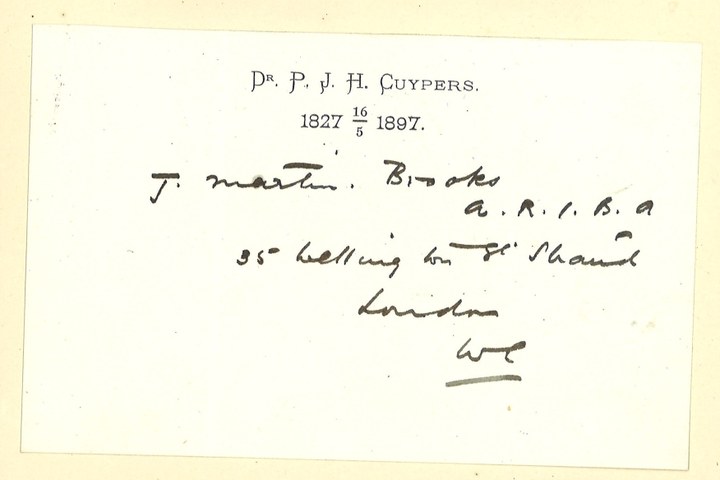 Dr. P. J. H. Cuypers.
1827 16/5 1897.
J. Martin. Brooks
A. R. I. B. A
35 Wellington St Strand
London
WC